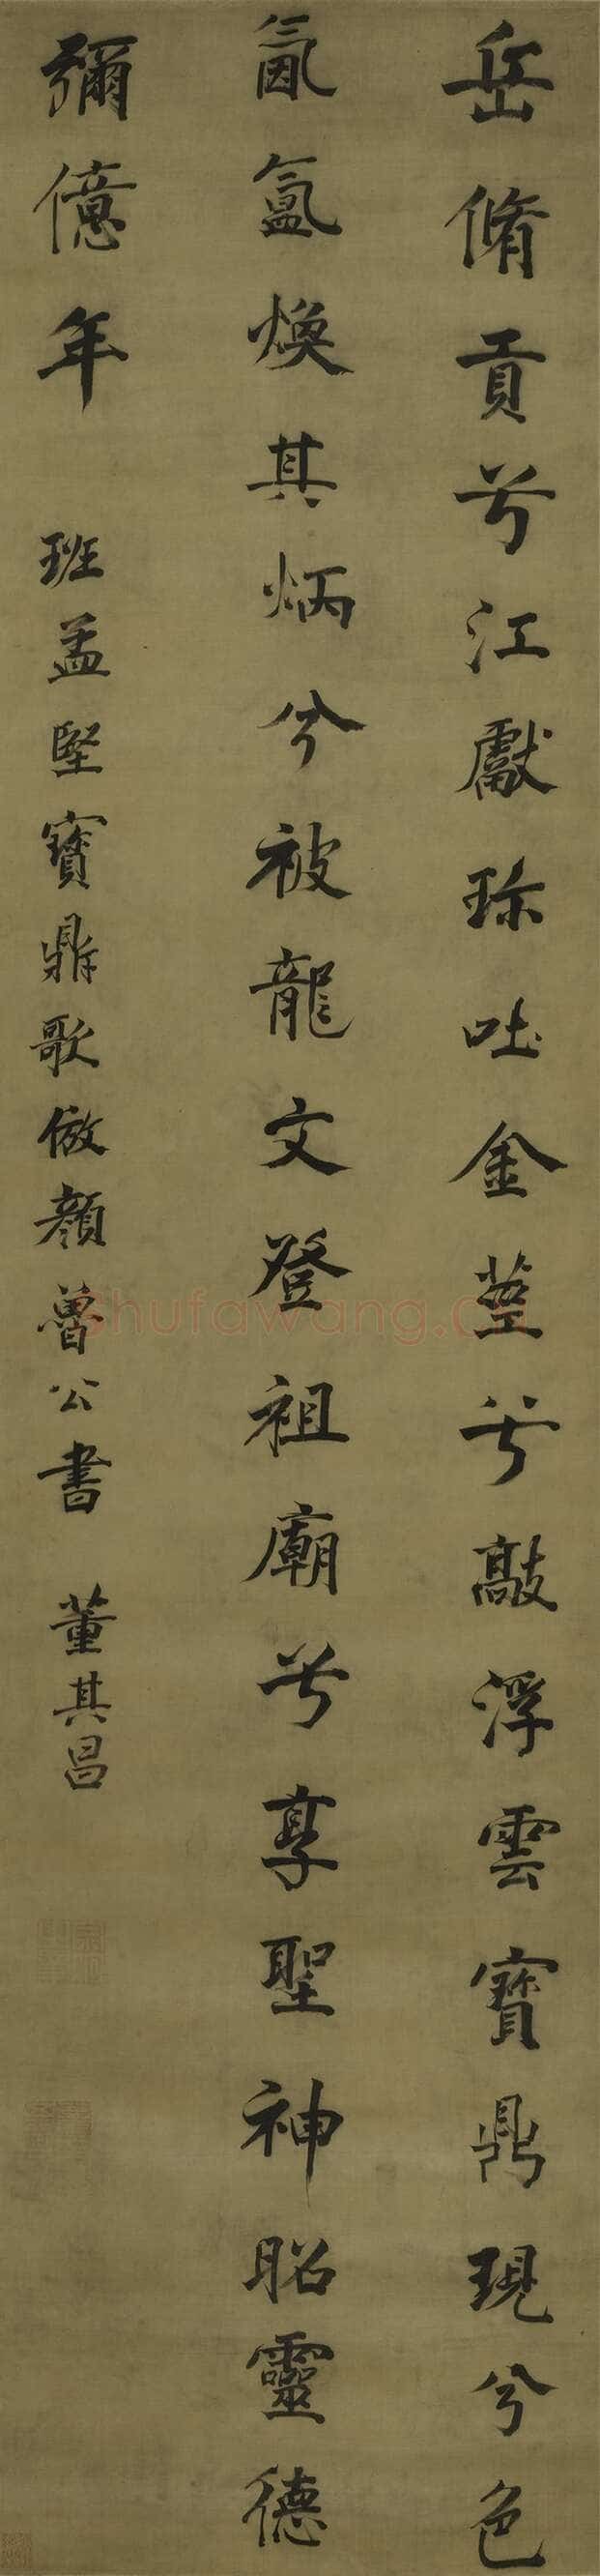 岳脩貢兮江獻珎吐金莖兮敲浮雲寶鼎現兮色
氤氳煥其炳兮被龍文登祖廟兮享聖神昭靈德
彌億年
班孟堅寶鼎歌倣顏魯公書
董其昌
shufawang.cn